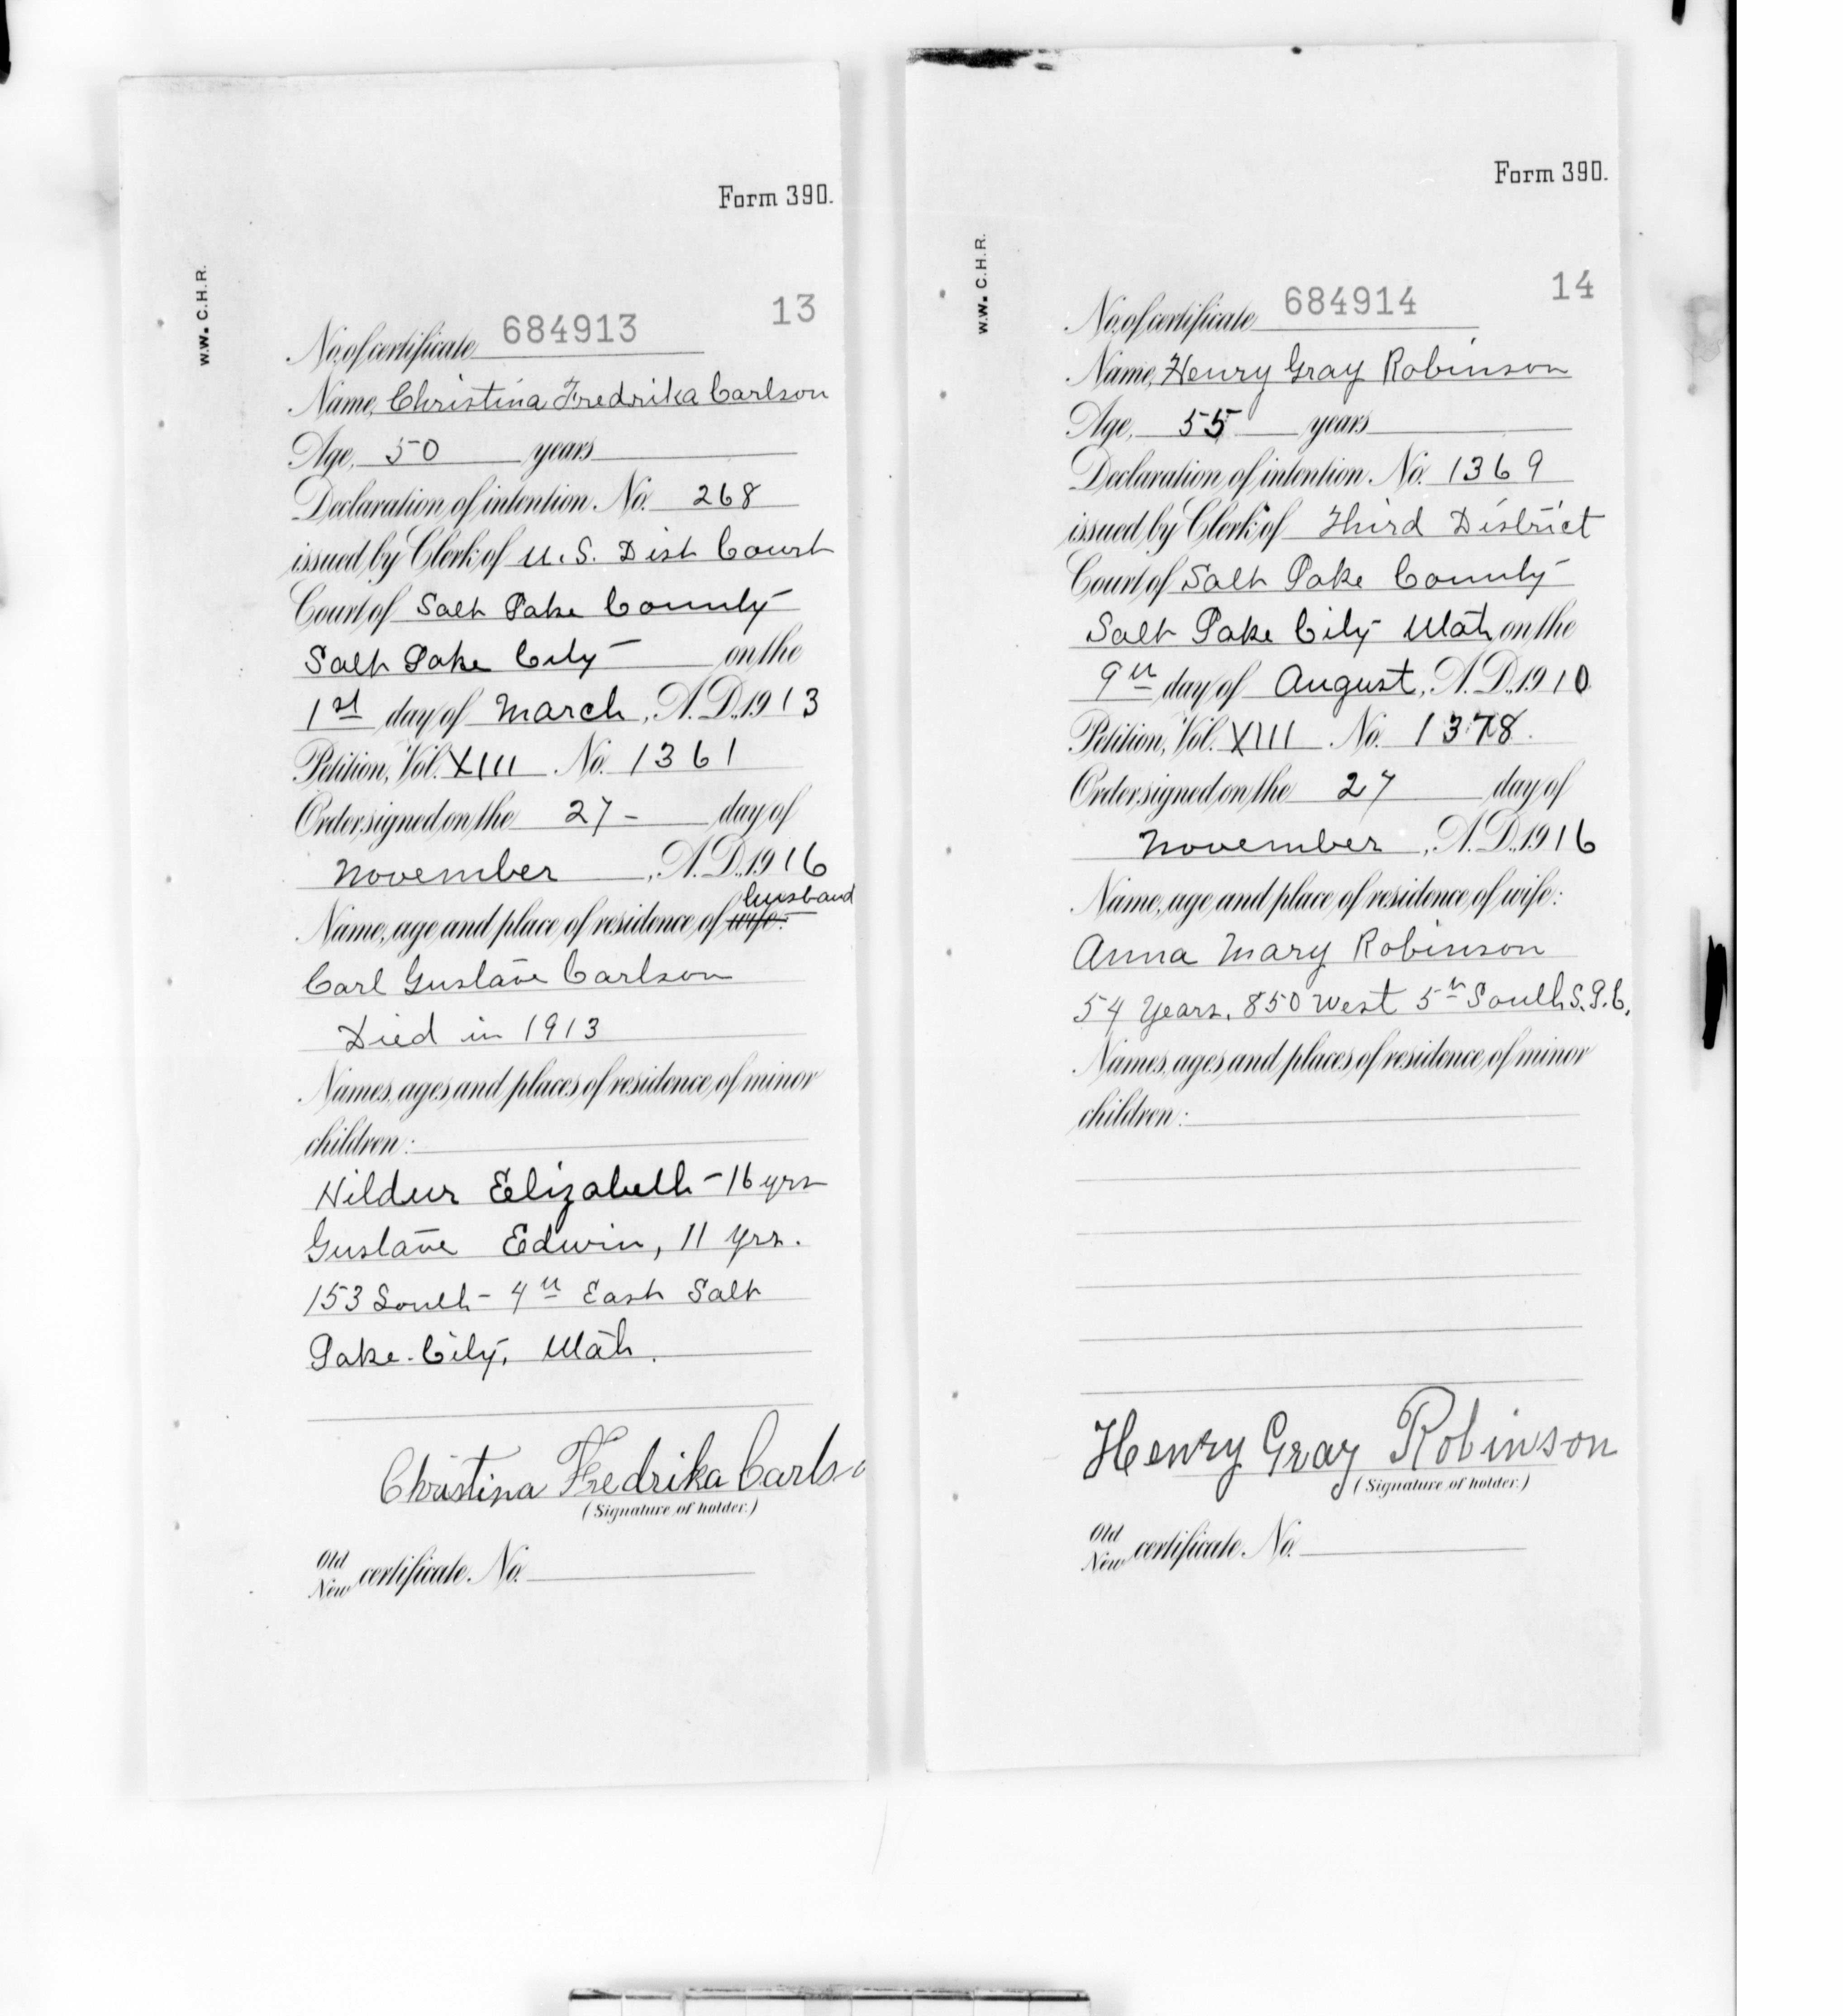 Form 390.
W.W. C.H.R.
13
No. of certificate 684913
Name, Christina Fredrika Carlson
Age, 50 years
Declaration of intention. No. 268
issued by Clerk of U.S. Dist Court
Court of Salt Lake County
Salt Lake City on the
1st day of March, A.D. 1913
Petition, Vol. XIII No. 1361
Order signed on the 27- day of
November, A.D. 1916
husband
Name, age and place of residence of wife:
Carl Gustave Carlson
Died in 1913
Names, ages and places of residence of minor
children:
Hildur Elizabeth - 16 yrs
Gustave Edwin, 11 yrs.
153 South - 4th East Salt
Lake City, Utah.
Christina Fredrika Carlso
(Signature of holder.)
Old
New certificate. No.
Form 390.
W.W. C.H.R.
14
No. of certificate 684914
Name, Henry Gray Robinson
Age, 55 years
Declaration of intention. No. 1369
issued by Clerk of Third District
Court of Salt Lake County
Salt Lake City Utah on the
9th day of August, A.D. 1910
Petition, Vol. XIII No. 1378.
Order signed on the 27 day of
November, A.D. 1916
Name, age and place of residence of wife:
Anna Mary Robinson
54 Years, 850 West 5th South S.L.C.
Names, ages and places of residence of minor
children:
Henry Gray Robinson
(Signature of holder.)
Old
New certificate. No.